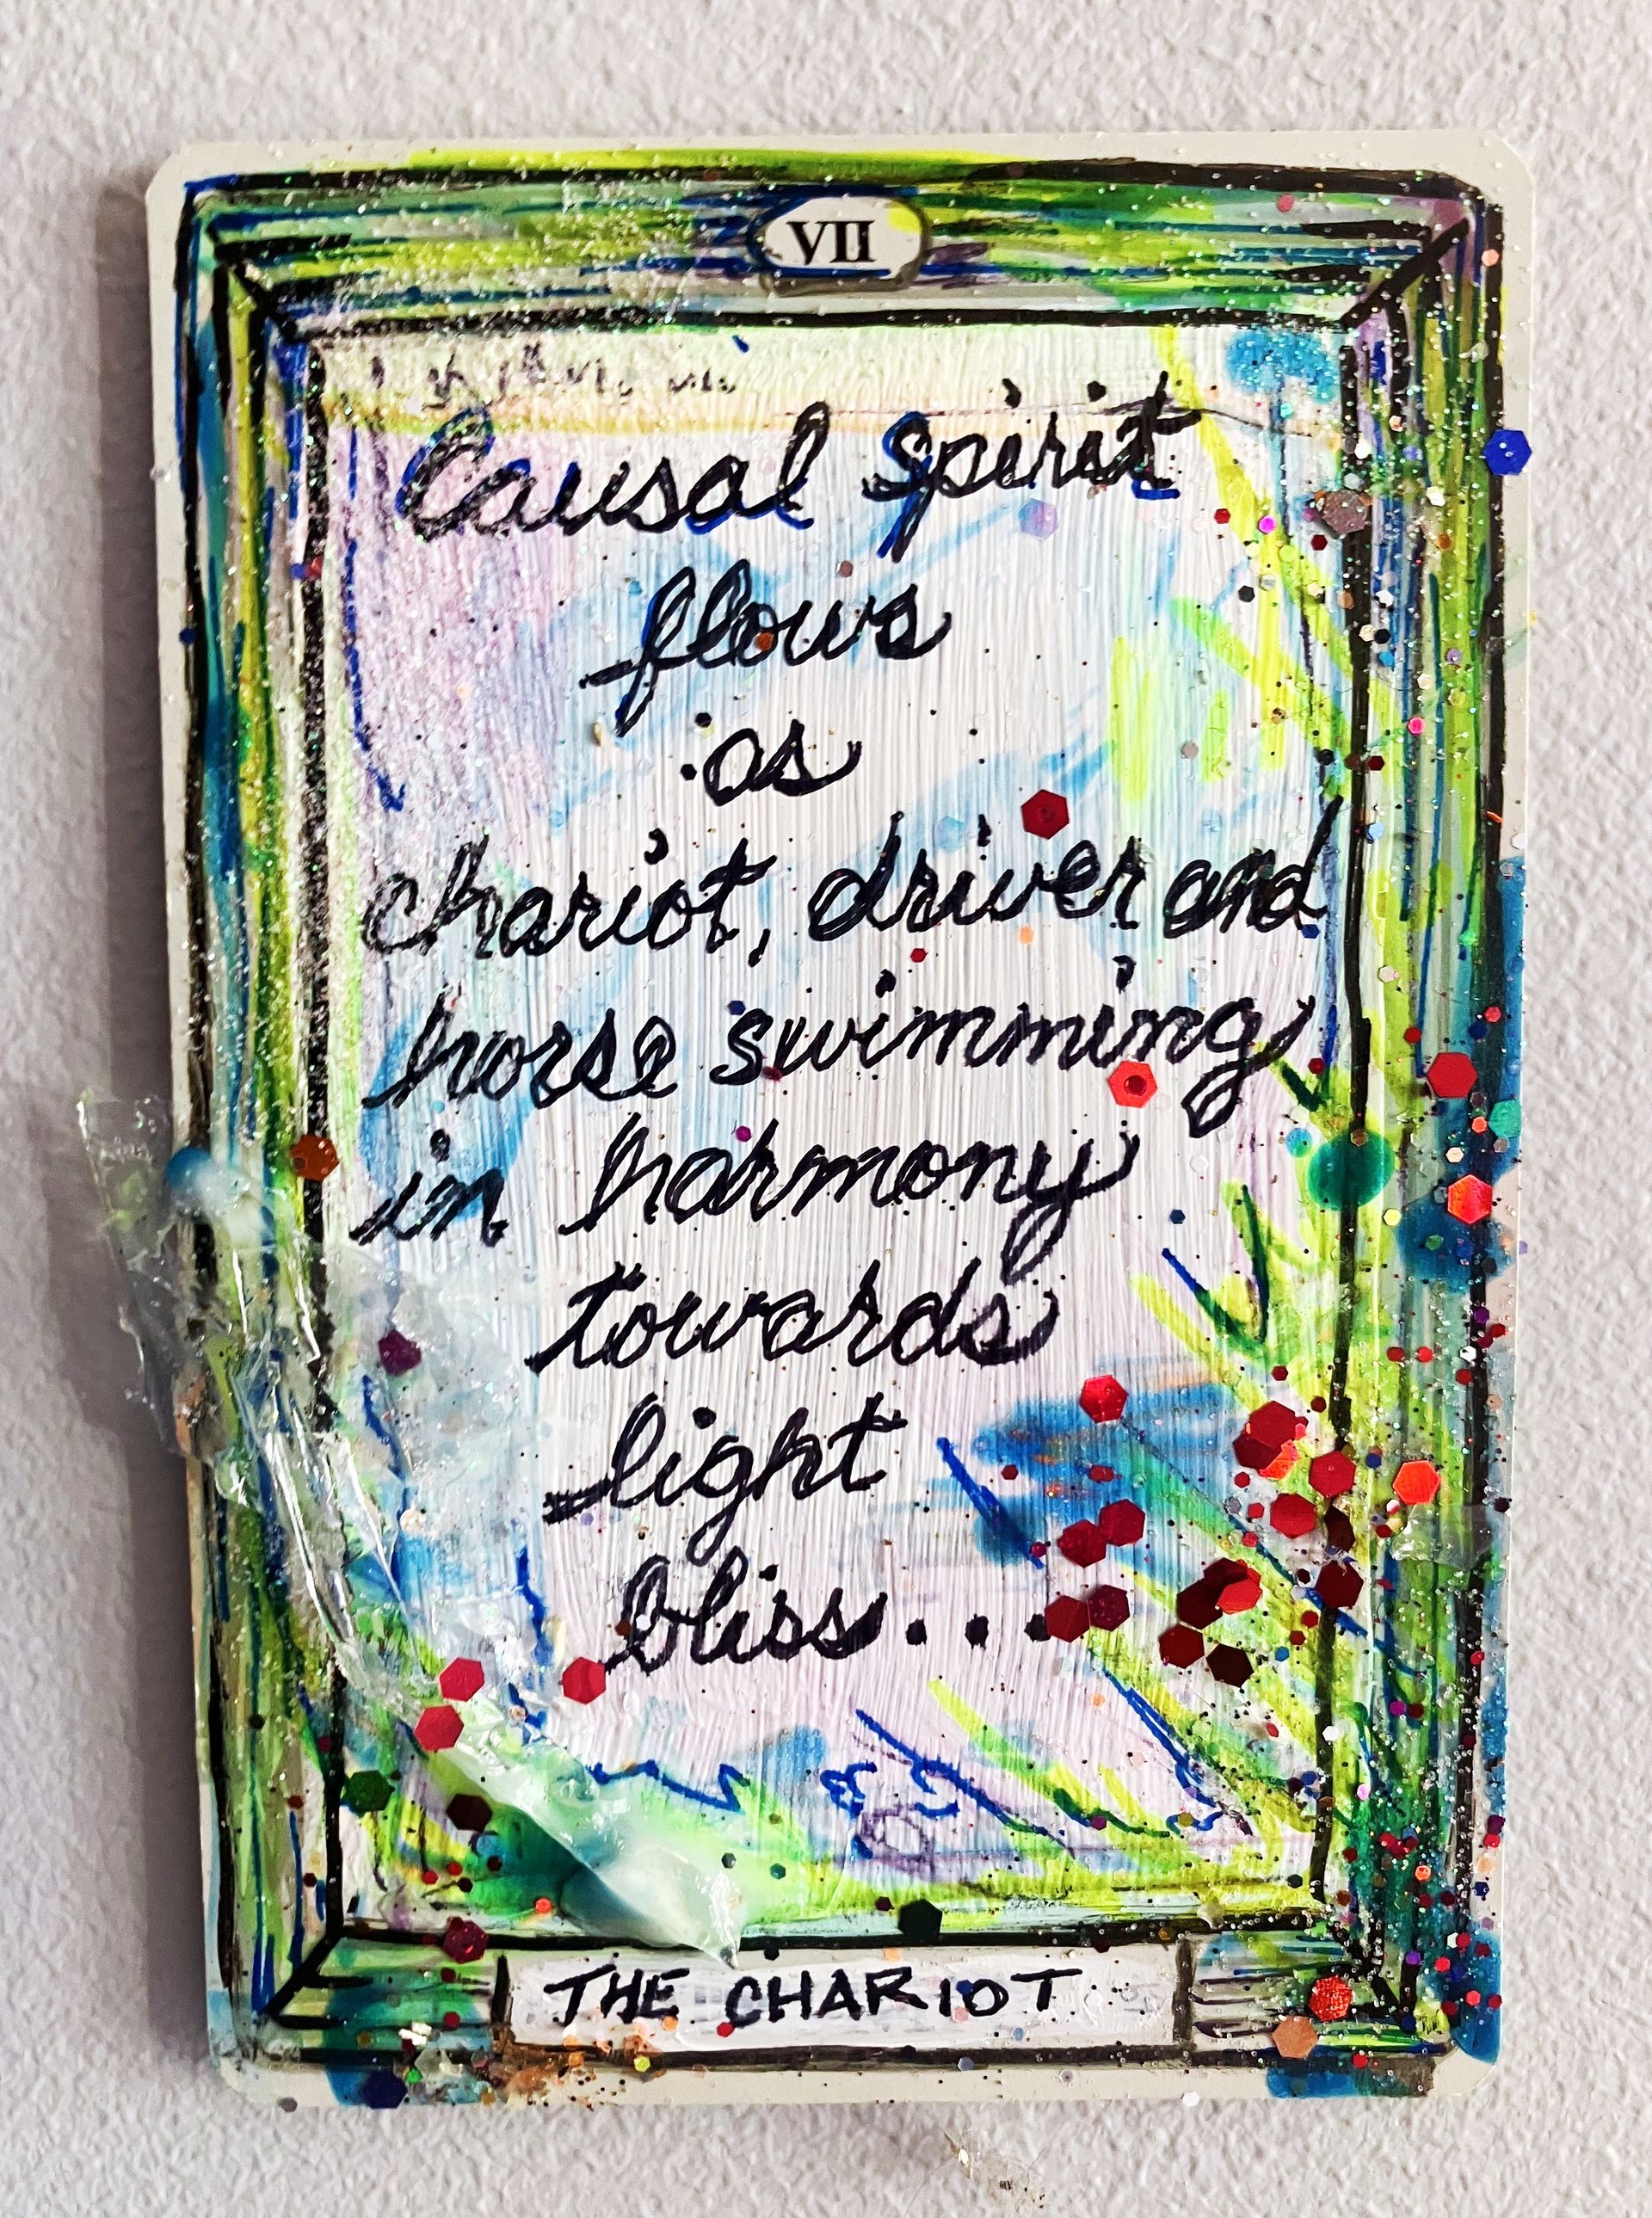 VII
Causal spirit
flows
as
chariot, driver and
horse swimming
in harmony
towards
light
bliss...
THE CHARIOT